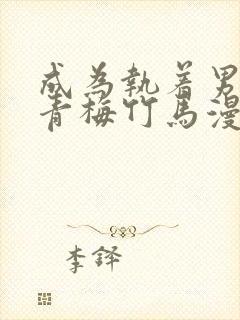 成為執着男
青梅竹馬漫
李鐸